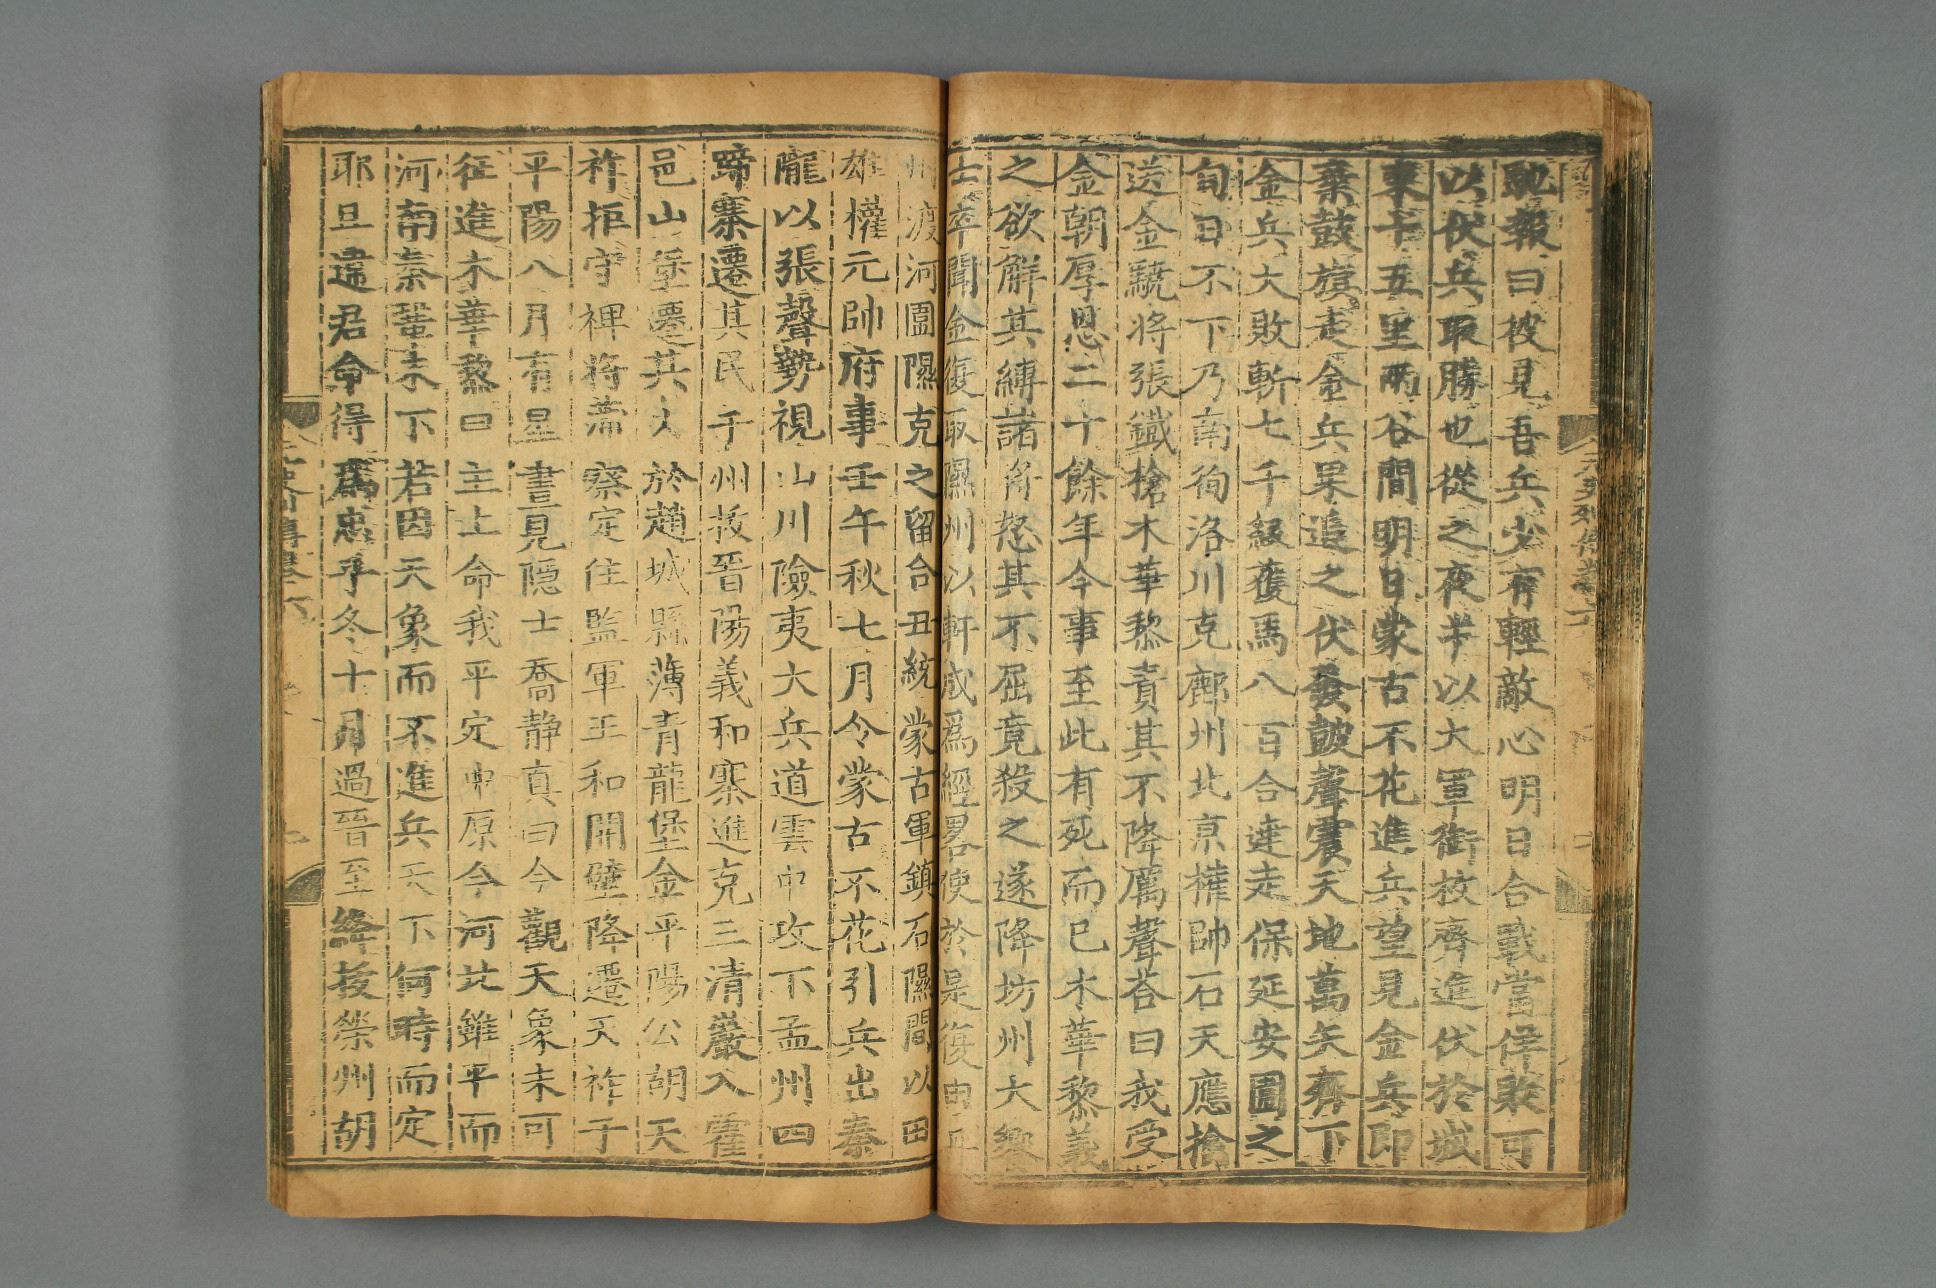 馳報曰彼見吾兵少有輕敵心明日合戰當佯敗可
以伏兵取勝也從之夜半以大軍銜枚齊進伏於城
東十五里兩谷間明日蒙古不花進兵望見金兵即
棄鼓旗走金兵果追之伏發鼓聲震天地萬矢齊下
金兵大敗斬七千級獲馬八百合達走保延安圍之
旬日不下乃南徇洛川克鄜州北京權帥石天應擒
送金驍將張鐵槍木華黎責其不降厲聲荅曰我受
金朝厚恩二十餘年今事至此有死而已木華黎義
之欲解其縛諸將怒其不屈竟殺之遂降坊州大饗
士卒聞金復取隰州以軒成爲經畧使於是復由丹
州渡河圍隰克之留合丑統蒙古軍鎮石隰間以田
雄權元帥府事壬午秋七月令蒙古不花引兵出秦
隴以張聲勢視山川險夷大兵道雲中攻下孟州四
蹄寨遷其民于州拔晉陽義和寨進克三清巖入霍
邑山堡遷其人於趙城縣薄青龍堡金平陽公胡天
祚拒守裨將蒲察定住監軍王和開壁降遷天祚于
平陽八月有星晝見隱士喬静真曰今觀天象未可
征進木華黎曰主上命我平定中原今河北雖平而
河南秦鞏未下若因天象而不進兵天下何時而定
耶且違君命得爲忠乎冬十月過晉至絳拔榮州胡